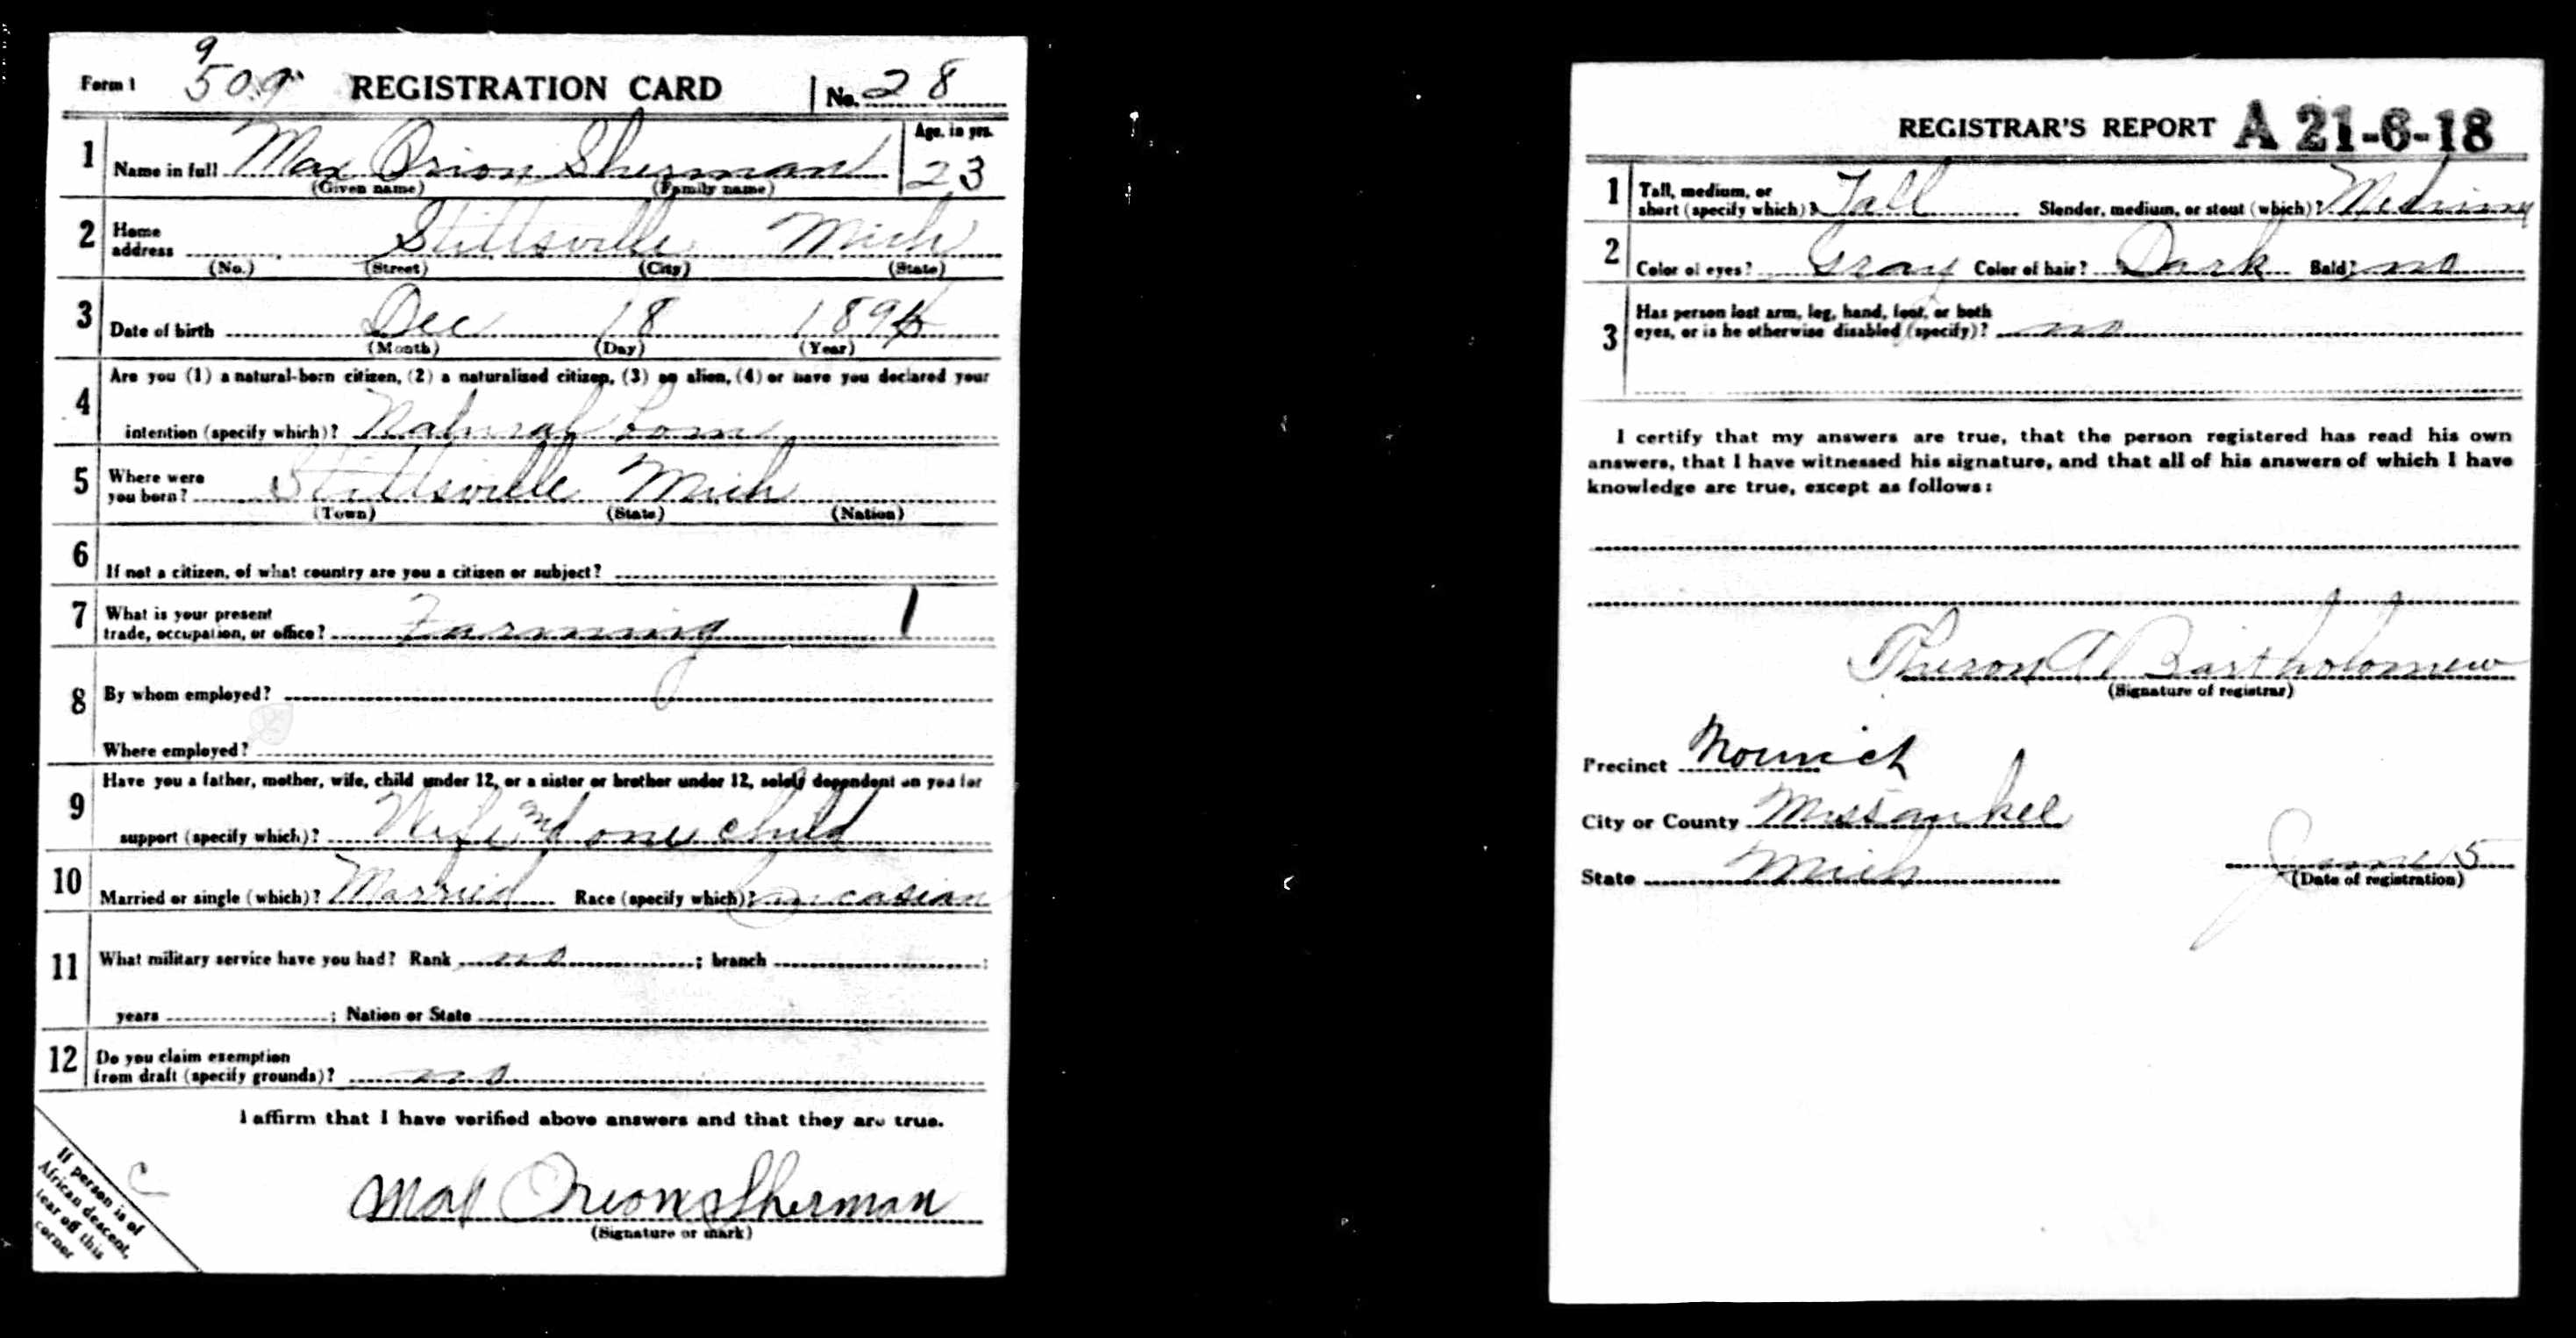 9
Form 1 509 REGISTRATION CARD No. 28
1 Name in full Max Orion Sherman Age, in yrs. 23
(Given name) (Family name)
2 Home address Stittsville Mich
(No.) (Street) (City) (State)
3 Date of birth Dec 18 1894
(Month) (Day) (Year)
4 Are you (1) a natural-born citizen, (2) a naturalized citizen, (3) an alien, (4) or have you declared your
intention (specify which)? Natural born
5 Where were you born? Stittsville Mich
(Town) (State) (Nation)
6 If not a citizen, of what country are you a citizen or subject?
7 What is your present
trade, occupation, or office? Farming 1
8 By whom employed?
Where employed?
9 Have you a father, mother, wife, child under 12, or a sister or brother under 12, solely dependent on you for
support (specify which)? Wife and one child
10 Married or single (which)? Married Race (specify which)? Caucasian
11 What military service have you had? Rank no ; branch ;
years ; Nation or State
12 Do you claim exemption
from draft (specify grounds)? no
I affirm that I have verified above answers and that they are true.
Max Orion Sherman
(Signature or mark)
C
If person is of
African descent,
tear off this
corner
REGISTRAR'S REPORT A 21-6-18
1 Tall, medium, or
short (specify which)? Tall Slender, medium, or stout (which)? Medium
2 Color of eyes? Gray Color of hair? Dark Bald? no
3 Has person lost arm, leg, hand, foot, or both
eyes, or is he otherwise disabled (specify)? no
I certify that my answers are true, that the person registered has read his own
answers, that I have witnessed his signature, and that all of his answers of which I have
knowledge are true, except as follows:
Theron A Bartholomew
(Signature of registrar)
Precinct Norwich
City or County Missaukee
State Mich June 5
(Date of registration)